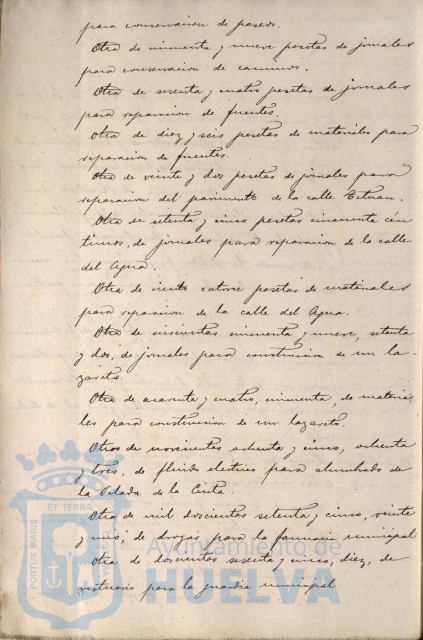 para conservacion de paseos.
Otra de cincuenta y nueve pesetas de jornales
para conservacion de caminos.
Otra de sesenta y cuatro pesetas de jornales
para reparacion de fuentes.
Otra de diez y seis pesetas de materiales para
reparacion de fuentes.
Otra de veinte y dos pesetas de jornales para
reparacion del pavimento de la calle Tetuan.
Otra de setenta y cinco pesetas cincuenta cen
timos, de jornales para reparacion de la calle
del Agua.
Otra de ciento catorce pesetas de materiales
para reparacion de la calle del Agua.
Otra de cincuenta y nueve, setenta
y dos, de jornales para construccion de un la-
zareto.
Otra de cuarenta y cuatro, cincuenta, de materia
les para construccion de un lazareto.
Otros de novecientos ochenta y cinco, ochenta
y tres, de fluido electrico para alumbrado de
la Velada de la Cinta.
Otra de mil doscientos setenta y cinco, veinte
y seis, de drogas para la farmacia municipal
Otra de doscientos sesenta y cinco, diez, de
vestuario para la guardia municipal
ET TERRÆ
PORTUS MARIS
Ayuntamiento de
HUELVA